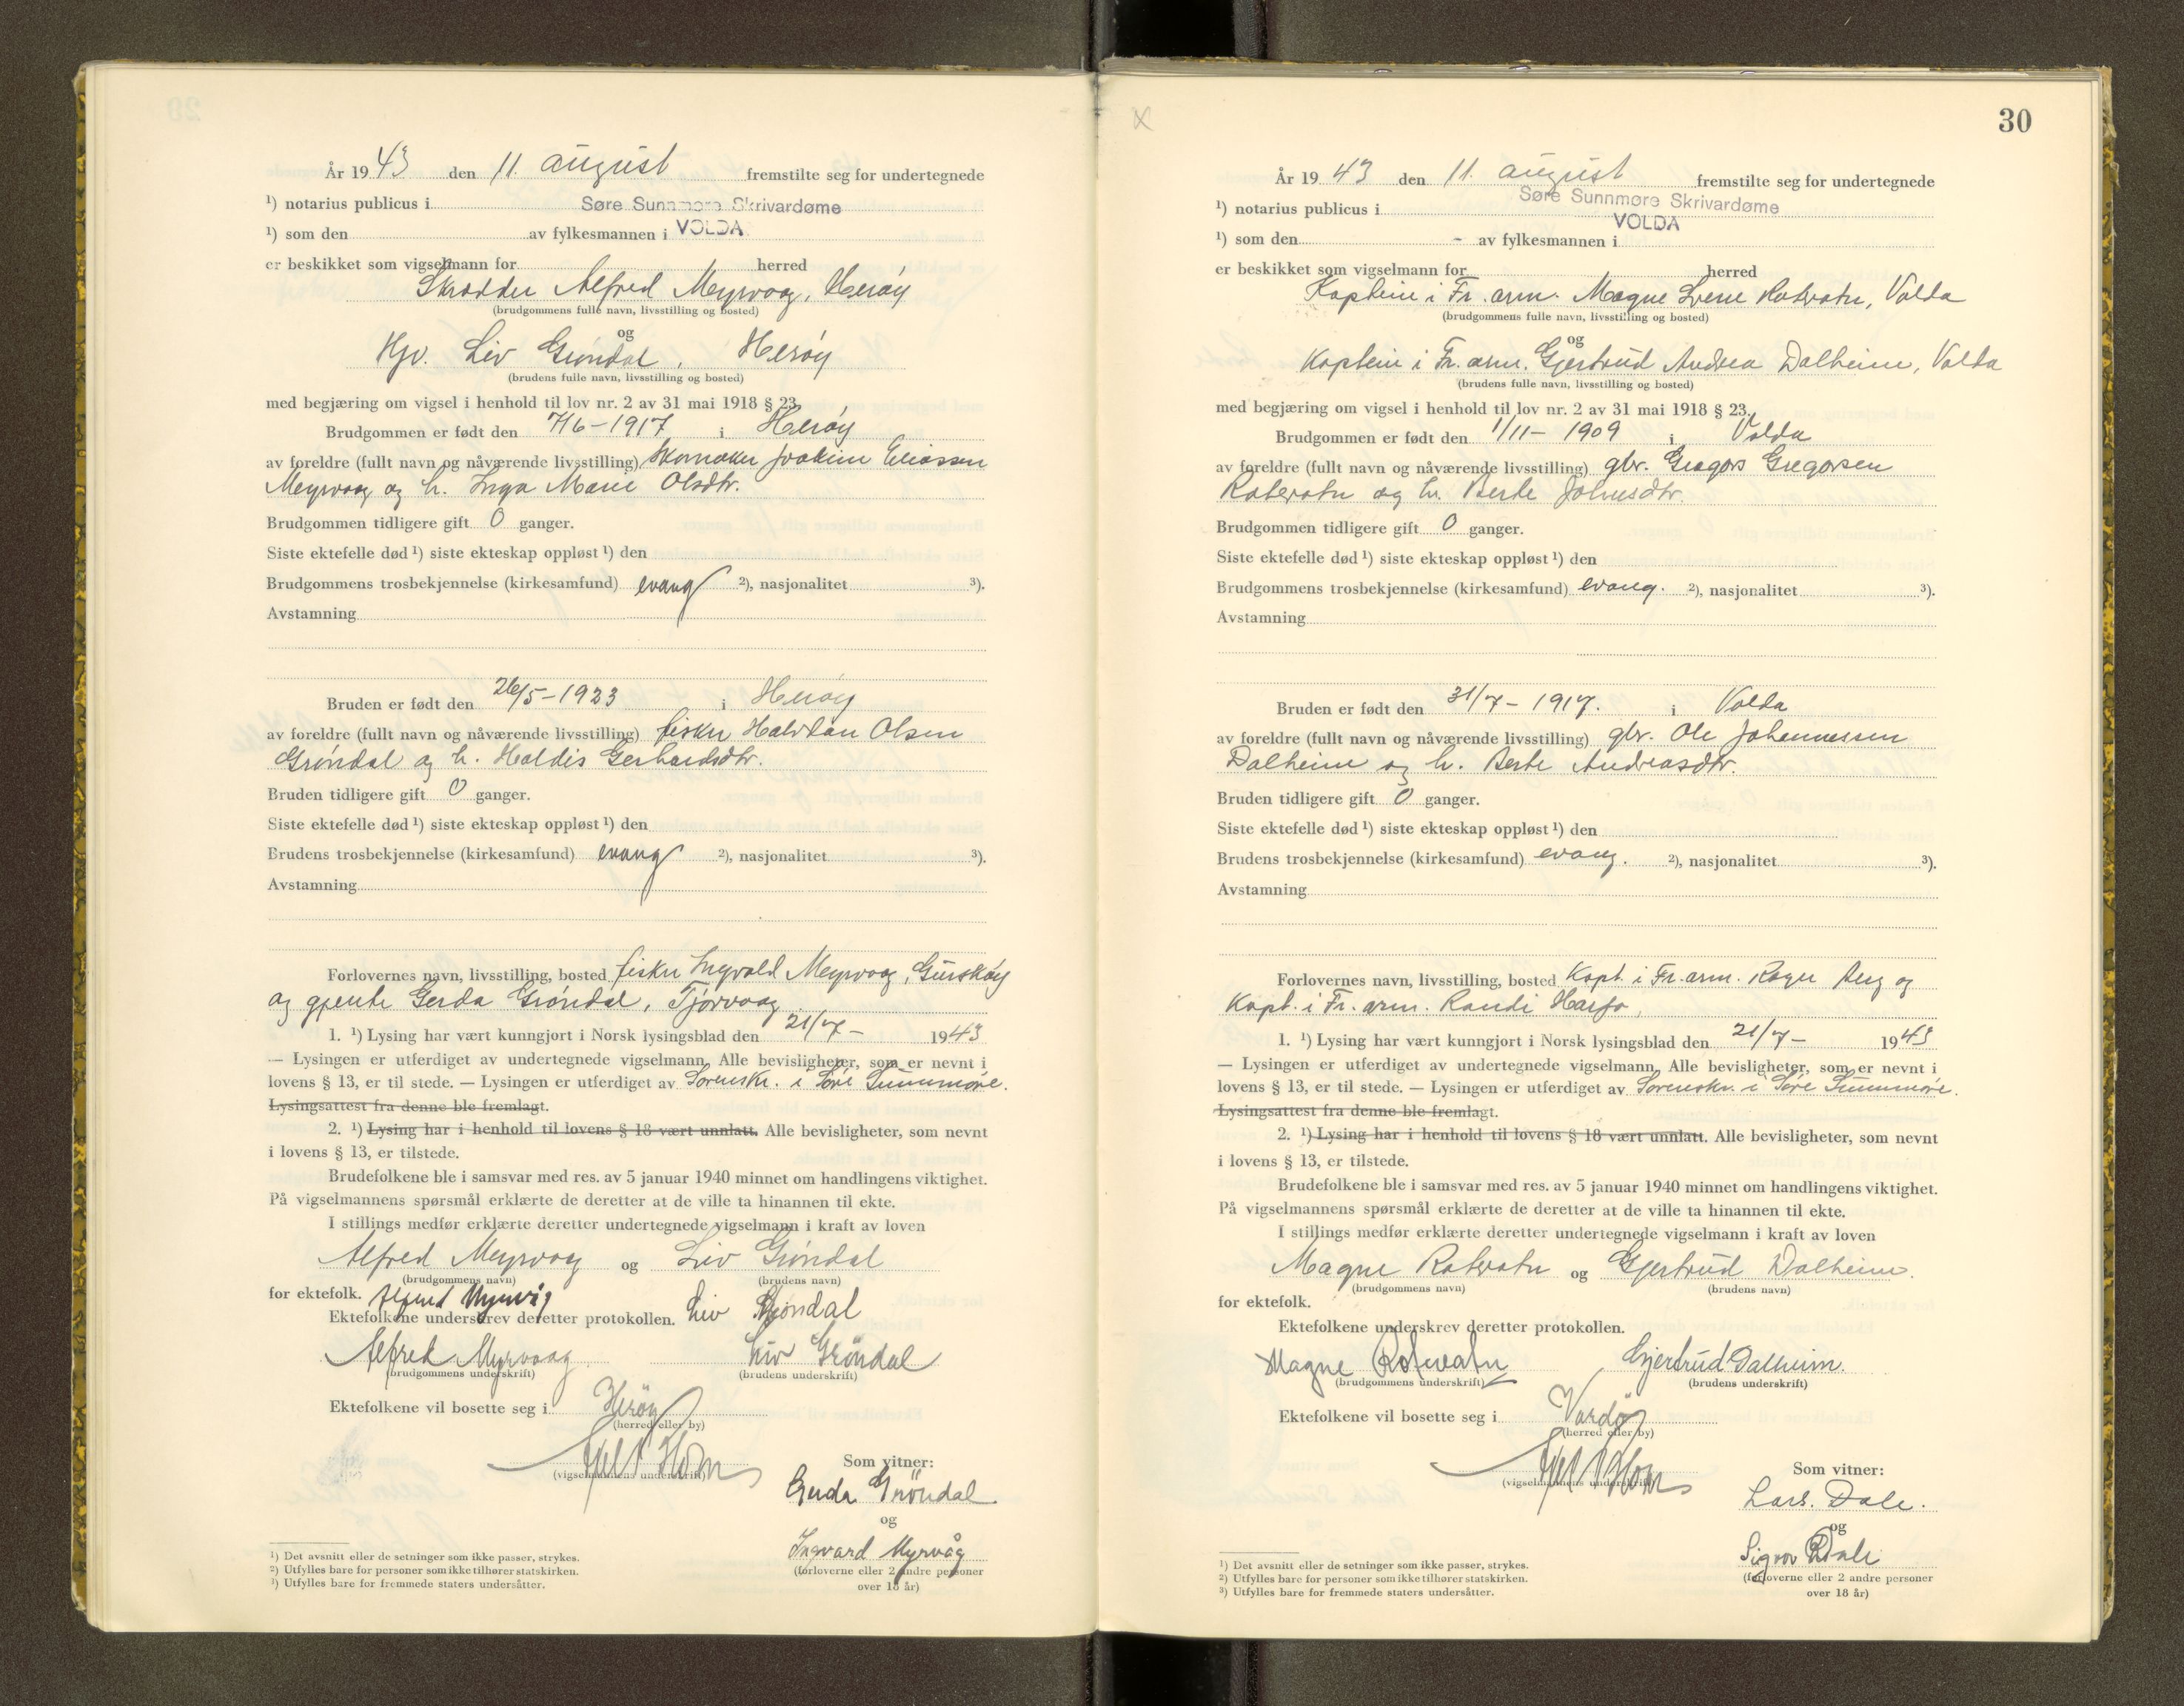 År 1943 den 11. august fremstilte seg for undertegnede
¹) notarius publicus i Søre Sunnmøre Skrivardøme
¹) som den av fylkesmannen i VOLDA
er beskikket som vigselmann for herred
Skredder Alfred Myrvaag, Herøy
(brudgommens fulle navn, livsstilling og bosted)
og
Hjv. Liv Grøndal, Herøy
(brudens fulle navn, livsstilling og bosted)
med begjæring om vigsel i henhold til lov nr. 2 av 31 mai 1918 § 23.
Brudgommen er født den 7/6-1917 i Herøy
av foreldre (fullt navn og nåværende livsstilling) Skomaker Joakim Eliassen
Myrvaag og h. Inga Marie Olsdtr.
Brudgommen tidligere gift 0 ganger.
Siste ektefelle død ¹) siste ekteskap oppløst ¹) den
Brudgommens trosbekjennelse (kirkesamfund) evang ²), nasjonalitet ³).
Avstamning
Bruden er født den 26/5-1923 i Herøy
av foreldre (fullt navn og nåværende livsstilling) fisker Halvdan Olsen
Grøndal og h. Haldis Gerhardsdtr.
Bruden tidligere gift 0 ganger.
Siste ektefelle død ¹) siste ekteskap oppløst ¹) den
Brudens trosbekjennelse (kirkesamfund) evang ²), nasjonalitet ³).
Avstamning
Forlovernes navn, livsstilling, bosted fisker Ingvald Myrvaag, Gurskøy
og gjente Gerda Grøndal, Tjørvaag
1. ¹) Lysing har vært kunngjort i Norsk lysingsblad den 21/7- 1943
— Lysingen er utferdiget av undertegnede vigselmann. Alle bevisligheter, som er nevnt i
lovens § 13, er til stede. — Lysingen er utferdiget av Sorenskr. i Søre Sunnmøre.
Lysingsattest fra denne ble fremlagt.
2. ¹) Lysing har i henhold til lovens § 18 vært unnlatt. Alle bevisligheter, som nevnt
i lovens § 13, er tilstede.
Brudefolkene ble i samsvar med res. av 5 januar 1940 minnet om handlingens viktighet.
På vigselmannens spørsmål erklærte de deretter at de ville ta hinannen til ekte.
I stillings medfør erklærte deretter undertegnede vigselmann i kraft av loven
Alfred Myrvaag og Liv Grøndal
(brudgommens navn) (brudens navn)
for ektefolk. Alfred
Ektefolkene underskrev deretter protokollen. Liv Grøndal
Alfred Myrvaag Liv Grøndal
(brudgommens underskrift) (brudens underskrift)
Ektefolkene vil bosette seg i Herøy
(herred eller by)
(vigselmannens underskrift)
Som vitner:
Gerda Grøndal
og
Ingvard Myrvåg
(forloverne eller 2 andre personer
over 18 år)
¹) Det avsnitt eller de setninger som ikke passer, strykes.
²) Utfylles bare for personer som ikke tilhører statskirken.
³) Utfylles bare for fremmede staters undersåtter.
30
År 1943 den 11. august fremstilte seg for undertegnede
¹) notarius publicus i Søre Sunnmøre Skrivardøme
VOLDA
¹) som den - av fylkesmannen i
er beskikket som vigselmann for herred
Kaptein i Fr. arm. Magne Svene Rotevatn, Volda
(brudgommens fulle navn, livsstilling og bosted)
og
Kaptein i Fr. arm. Gjertrud Andrea Dalheim, Volda
(brudens fulle navn, livsstilling og bosted)
med begjæring om vigsel i henhold til lov nr. 2 av 31 mai 1918 § 23.
Brudgommen er født den 1/11- 1909 i Volda
av foreldre (fullt navn og nåværende livsstilling) gbr. Gregors Gregorsen
Rotevatn og h. Berte Johnsdtr.
Brudgommen tidligere gift 0 ganger.
Siste ektefelle død ¹) siste ekteskap oppløst ¹) den
Brudgommens trosbekjennelse (kirkesamfund) evang. ²), nasjonalitet ³).
Avstamning
Bruden er født den 31/7-1917. i Volda
av foreldre (fullt navn og nåværende livsstilling) gbr. Ole Johannessen
Dalheim og h. Berte Andreasdtr.
Bruden tidligere gift 0 ganger.
Siste ektefelle død ¹) siste ekteskap oppløst ¹) den
Brudens trosbekjennelse (kirkesamfund) evang. ²), nasjonalitet ³).
Avstamning
Forlovernes navn, livsstilling, bosted Kapt. i Fr. arm. Roger Berg og
Kapt. i Fr. arm. Randi
1. ¹) Lysing har vært kunngjort i Norsk lysingsblad den 21/7- 1943
— Lysingen er utferdiget av undertegnede vigselmann. Alle bevisligheter, som er nevnt i
lovens § 13, er til stede. — Lysingen er utferdiget av Sorenskr. i Søre Sunnmøre.
Lysingsattest fra denne ble fremlagt.
2. ¹) Lysing har i henhold til lovens § 18 vært unnlatt. Alle bevisligheter, som nevnt
i lovens § 13, er tilstede.
Brudefolkene ble i samsvar med res. av 5 januar 1940 minnet om handlingens viktighet.
På vigselmannens spørsmål erklærte de deretter at de ville ta hinannen til ekte.
I stillings medfør erklærte deretter undertegnede vigselmann i kraft av loven
Magne Rotevatn og Gjertrud Dalheim.
(brudgommens navn) (brudens navn)
for ektefolk.
Ektefolkene underskrev deretter protokollen.
Magne Rotevatn Gjertrud Dalheim.
(brudgommens underskrift) (brudens underskrift)
Ektefolkene vil bosette seg i Vardø
(herred eller by)
(vigselmannens underskrift)
Som vitner:
Lars. Dale.
og
Sigvor Dale
(forloverne eller 2 andre personer
over 18 år)
¹) Det avsnitt eller de setninger som ikke passer, strykes.
²) Utfylles bare for personer som ikke tilhører statskirken.
³) Utfylles bare for fremmede staters undersåtter.